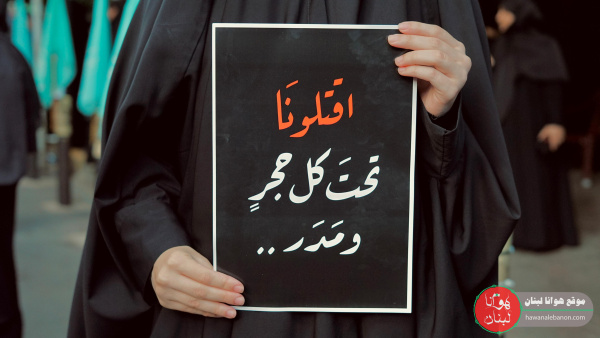 اقتلونَا
تحتَ كل حجرٍ
ومَدَر ..
هوانا
لبنان
موقع هوانا لبنان
hawanalebanon.com